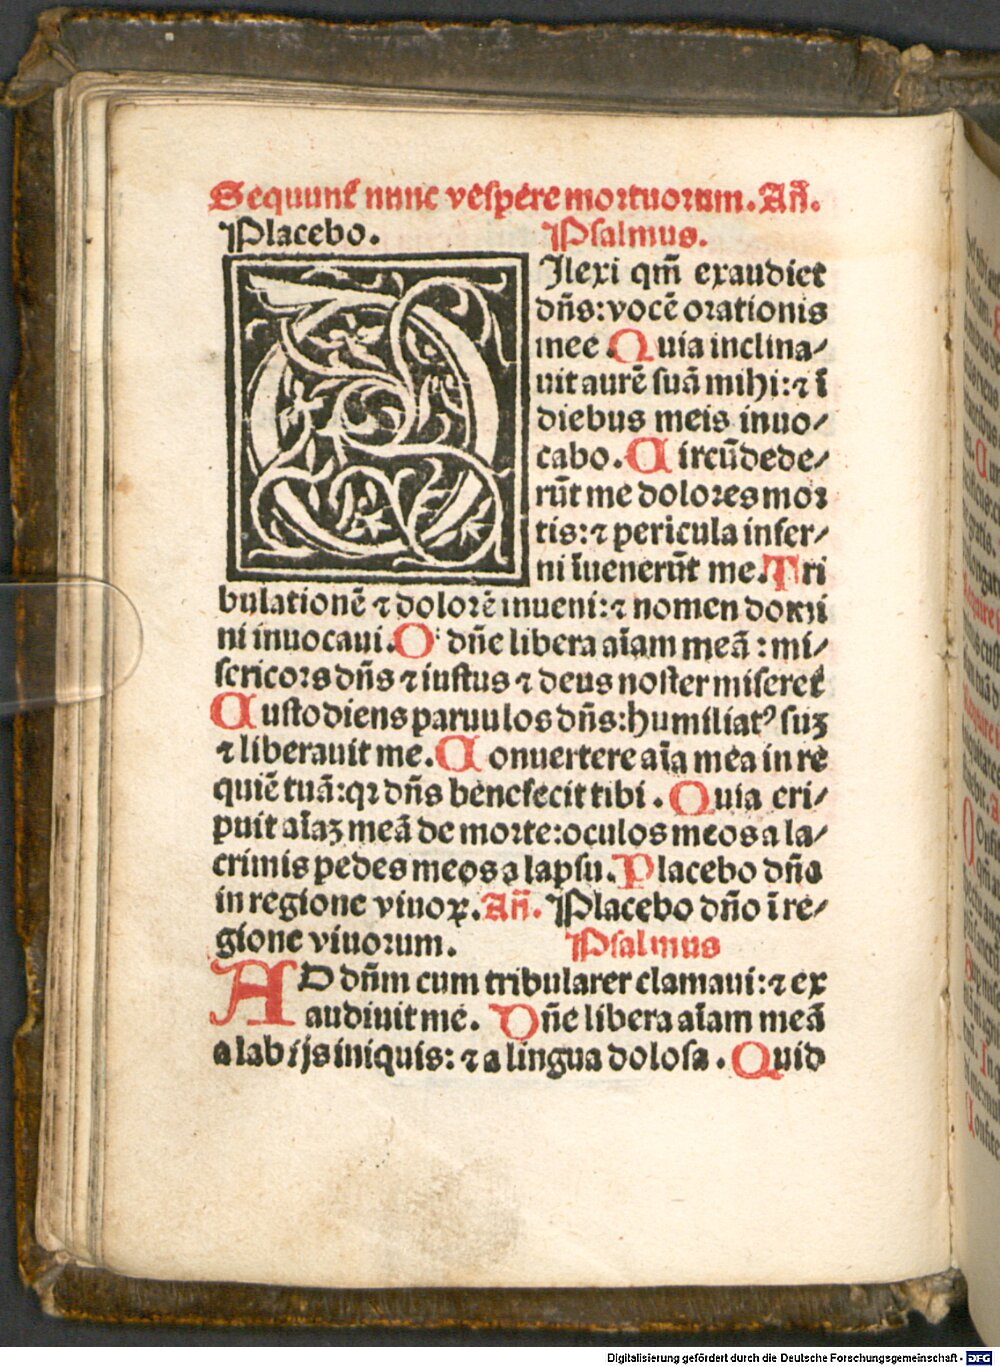 Sequunt᷑ nunc vespere mortuorum. Añ.
Placebo. Psalmus.
DIlexi qm̃ exaudiet
dñs: vocẽ orationis
mee Quia inclina/
uit aurẽ suã mihi: ⁊ ĩ
diebus meis inuo/
cabo. Circũdede/
rũt me dolores mor
tis: ⁊ pericula infer/
ni ĩuenerũt me. Tri
bulationẽ ⁊ dolorẽ inueni: ⁊ nomen domi
ni inuocaui. O dñe libera aĩam meã: mi/
sericors dñs ⁊ iustus ⁊ deus noster miseret᷑
Custodiens paruulos dñs: humiliatꝰ suꝫ
⁊ liberauit me. Conuertere aĩa mea in re
quiẽ tuã: qꝛ dñs benefecit tibi. Quia eri/
puit aĩaꝫ meã de morte: oculos meos a la/
crimis pedes meos a lapsu. Placebo dño
in regione viuoꝝ. Añ. Placebo dño ĩ re/
gione viuorum. Psalmus
AD dñm cum tribularer clamaui: ⁊ ex
audiuit me. Dñe libera aĩam meã
a labijs iniquis: ⁊ a lingua dolosa. Quid
Digitalisierung gefördert durch die Deutsche Forschungsgemeinschaft - DFG